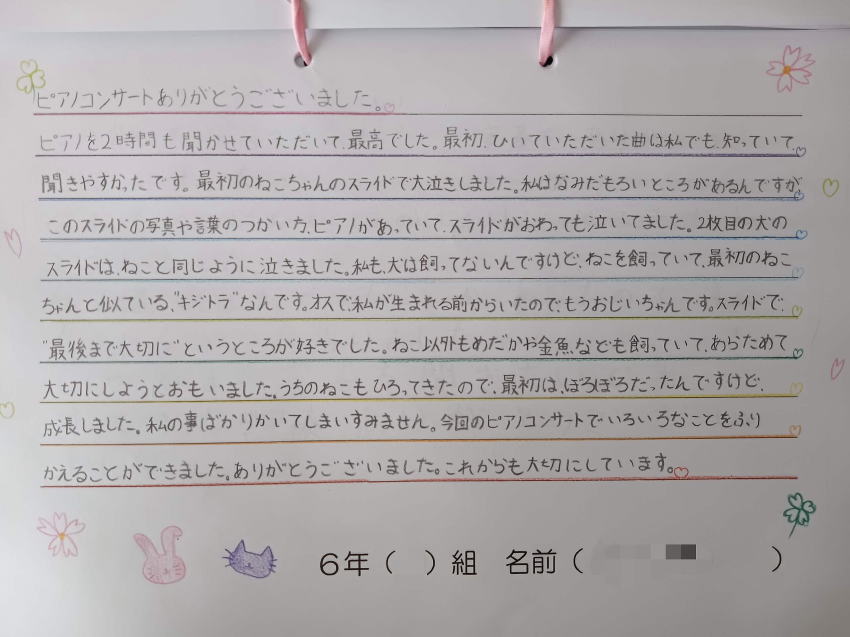 ピアノコンサートありがとうございました。
ピアノを2時間も聞かせていただいて、最高でした。最初、ひいていただいた曲は私でも、知っていて、
聞きやすかったです。最初のねこちゃんのスライドで大泣きしました。私はなみだもろいところがあるんですが、
このスライドの写真や言葉のつかい方、ピアノがあっていて、スライドがおわっても泣いてました。2枚目の犬の
スライドは、ねこと同じように泣きました。私も、犬は飼ってないんですけど、ねこを飼っていて、最初のねこ
ちゃんと似ている、"キジトラ"なんです。オスで、私が生まれる前からいたので、もうおじいちゃんです。スライドで、
"最後まで大切に"というところが好きでした。ねこ以外もめだかや金魚、なども飼っていて、あらためて
大切にしようとおもいました。うちのねこもひろってきたので、最初は、ぼろぼろだったんですけど、
成長しました。私の事ばかりかいてしまいすみません。今回のピアノコンサートでいろいろなことをふり
かえることができました。ありがとうございました。これからも大切にしています。
6年（　）組　名前（　　　　　　）